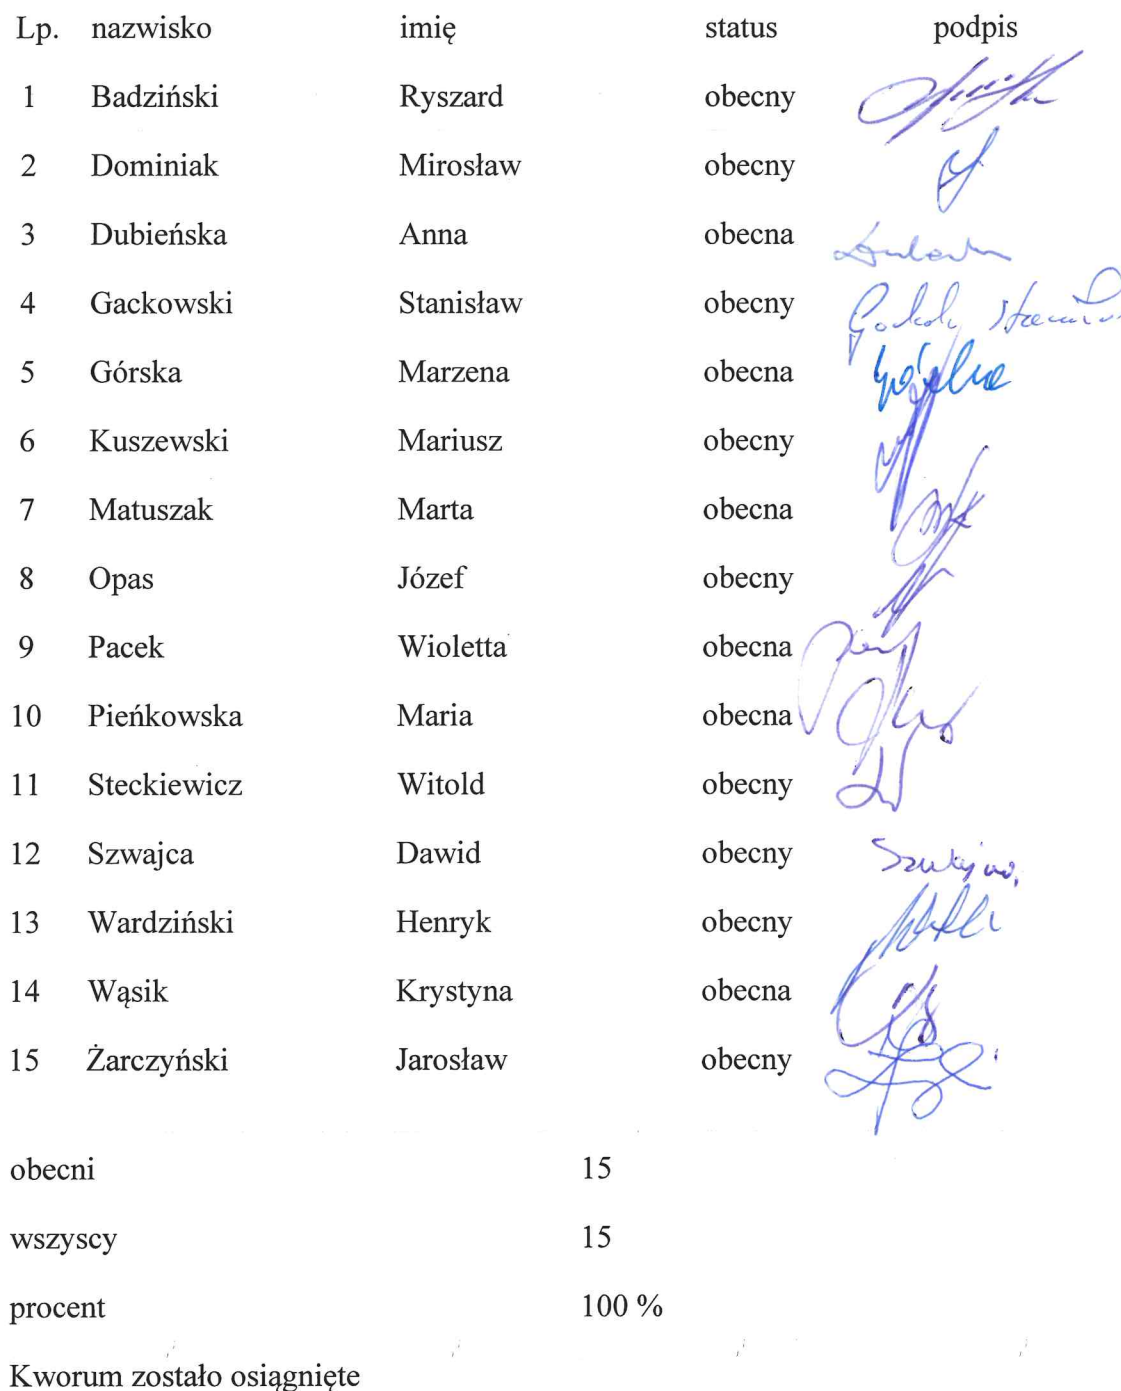 Lp. nazwisko imię status podpis
1 Badziński Ryszard obecny
2 Dominiak Mirosław obecny
3 Dubieńska Anna obecna
4 Gackowski Stanisław obecny
5 Górska Marzena obecna Górska
6 Kuszewski Mariusz obecny
7 Matuszak Marta obecna
8 Opas Józef obecny
9 Pacek Wioletta obecna
10 Pieńkowska Maria obecna
11 Steckiewicz Witold obecny
12 Szwajca Dawid obecny
13 Wardziński Henryk obecny
14 Wąsik Krystyna obecna
15 Żarczyński Jarosław obecny
obecni 15
wszyscy 15
procent 100 %
Kworum zostało osiągnięte